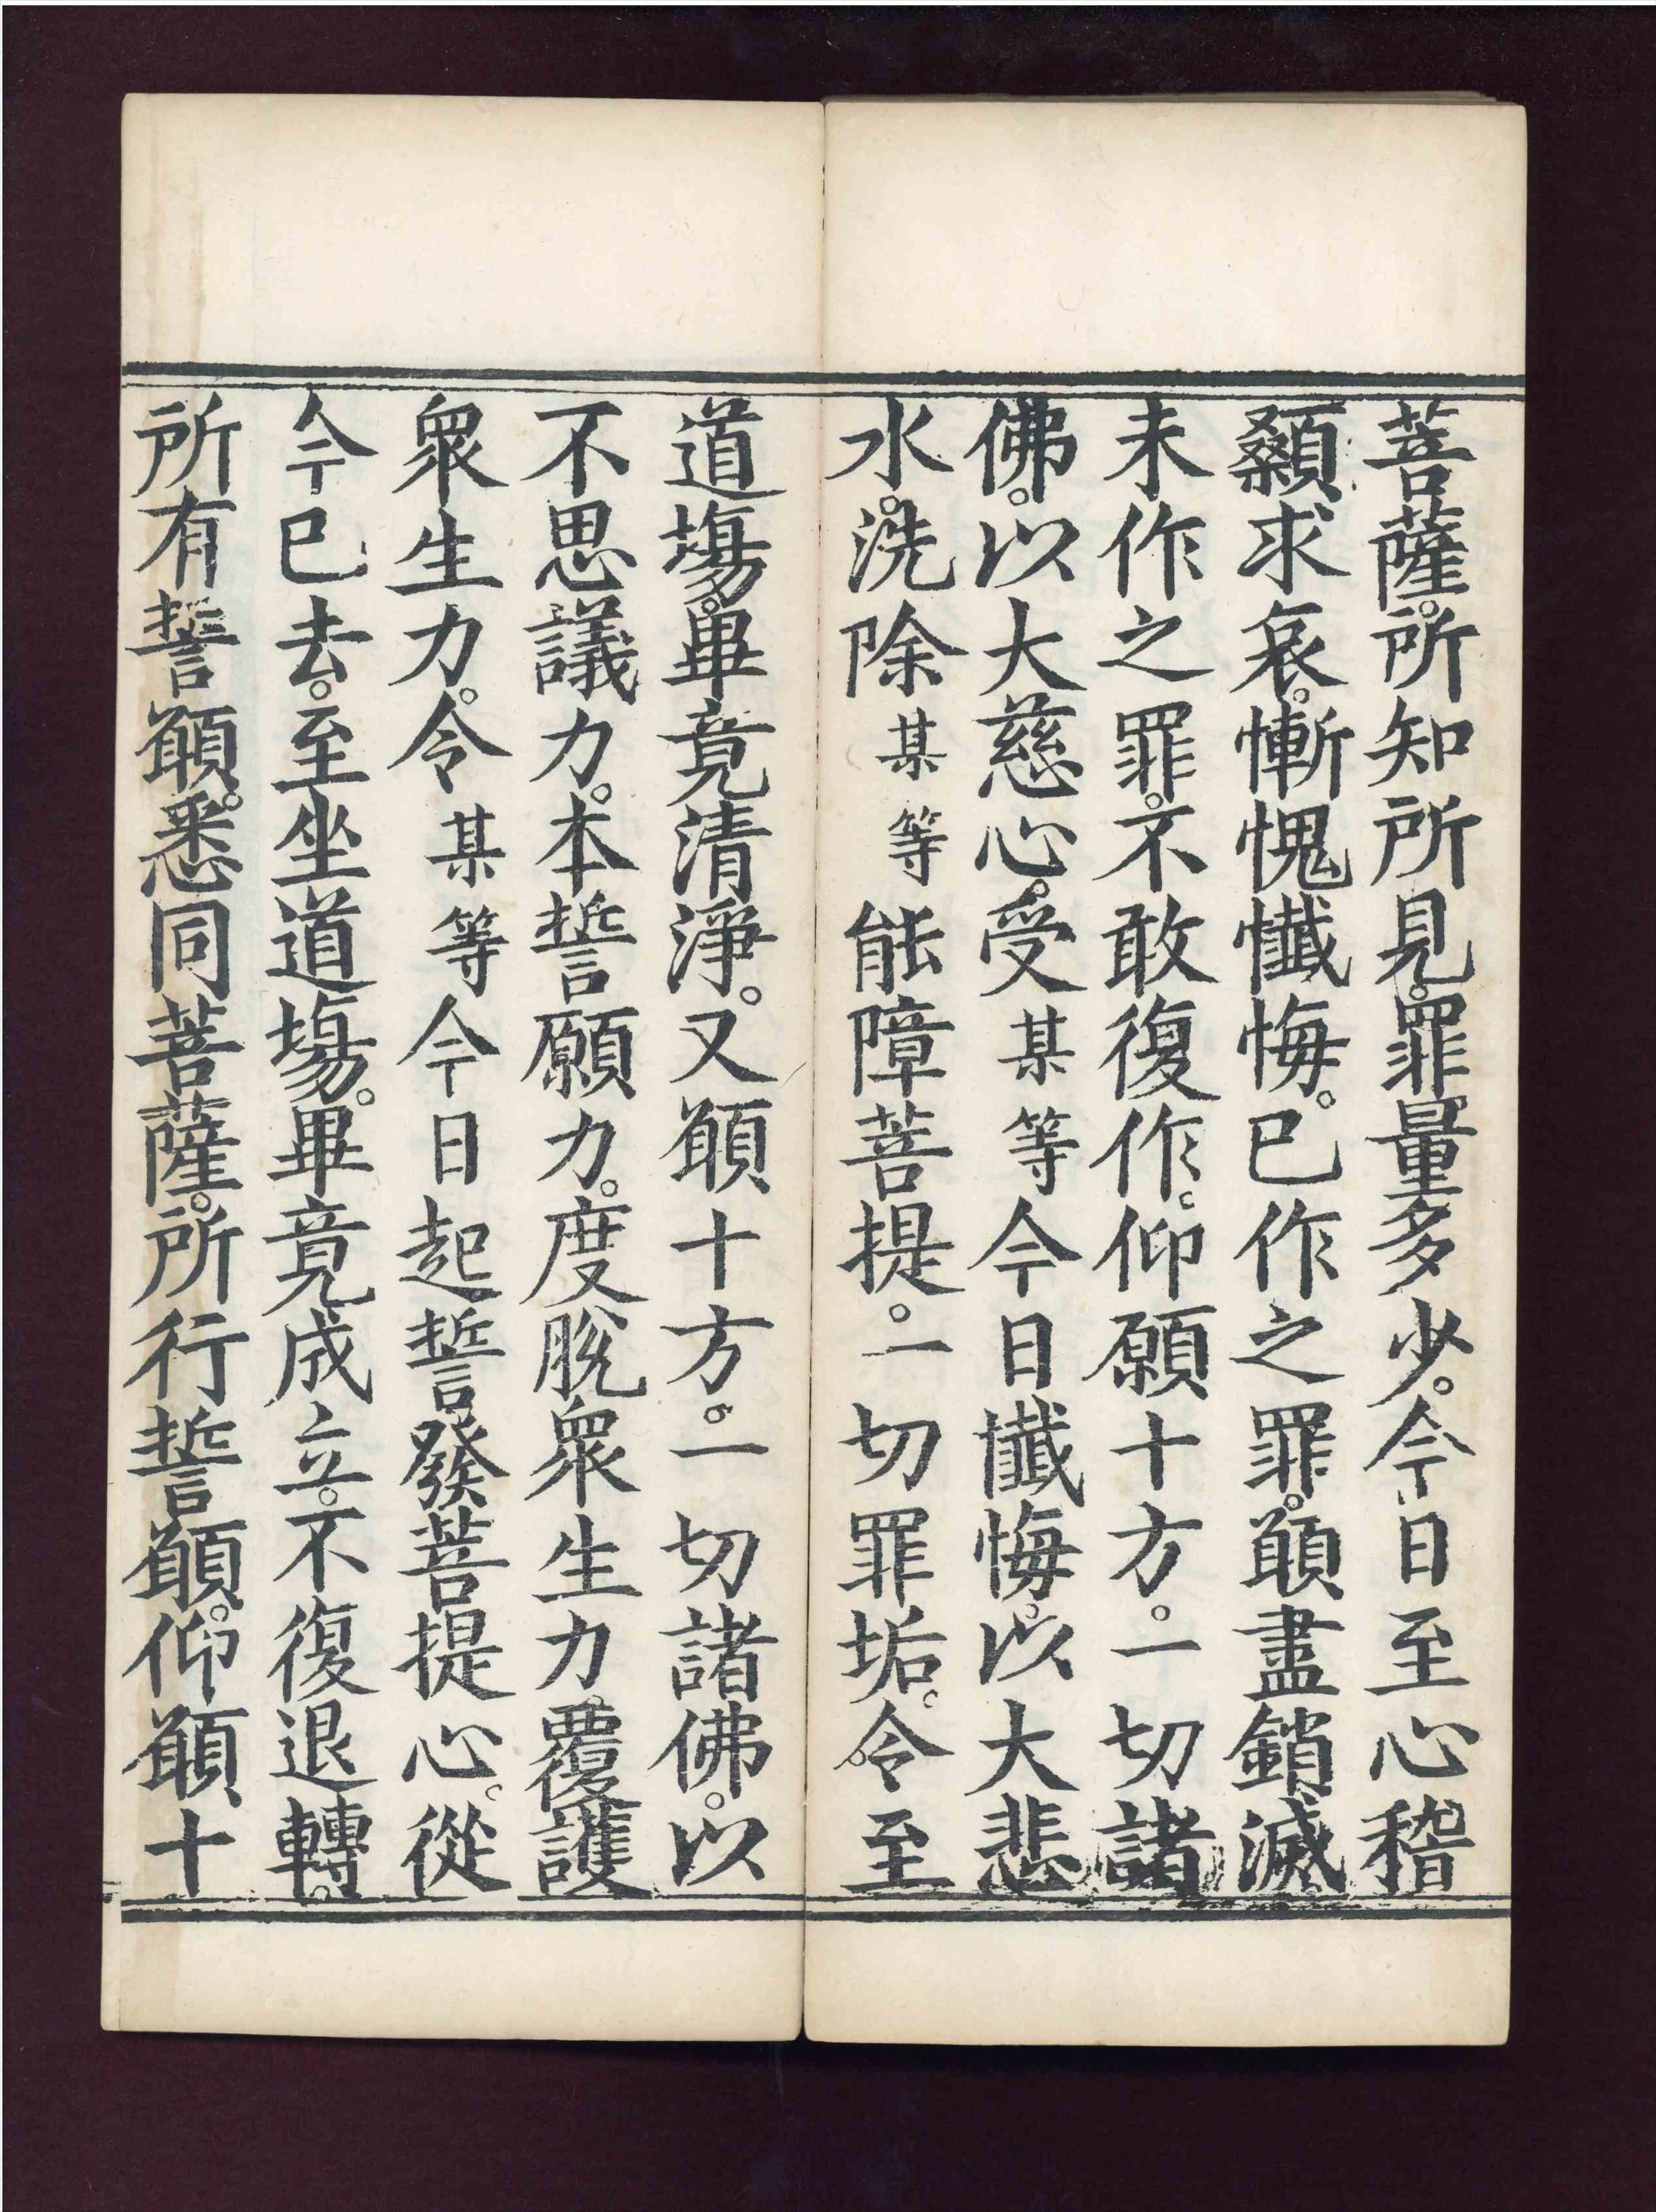 菩薩。所知所見。罪量多少。今日至心稽
顙求哀。慚愧懺悔。已作之罪。願盡鎖滅
未作之罪。不敢復作。仰願十方。一切諸
佛。以大慈心。受某等今日懺悔。以大悲
水。洗除某等能障菩提。一切罪垢。令至
道場。畢竟清淨。又願十方。一切諸佛。以
不思議力。本誓願力。度脫眾生力。覆護
眾生力。令某等今日起誓發菩提心。從
今已去。至坐道場。畢竟成立。不復退轉。
所有誓願。悉同菩薩。所行誓願。仰願十